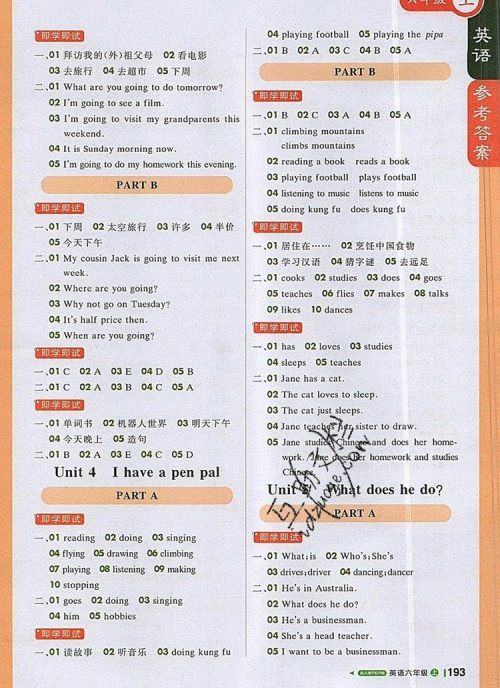 六年级 上
英语 参考答案
即学即试
一、01 拜访我的(外)祖父母 02 看电影
03 去旅行 04 去超市 05 下周
二、01 What are you going to do tomorrow?
02 I'm going to see a film.
03 I'm going to visit my grandparents this
weekend.
04 It is Sunday morning now.
05 I'm going to do my homework this evening.
PART B
即学即试
一、01 下周 02 太空旅行 03 许多 04 半价
05 今天下午
二、01 My cousin Jack is going to visit me next
week.
02 Where are you going?
03 Why not go on Tuesday?
04 It's half price then.
05 When are you going?
即学即试
一、01 C 02 A 03 E 04 D 05 B
二、01 C 02 A 03 B 04 C 05 A
即学即试
一、01 单词书 02 机器人世界 03 明天下午
04 今天晚上 05 造句
二、01 B 02 A 03 E 04 C 05 D
Unit 4 I have a pen pal
PART A
即学即试
一、01 reading 02 doing 03 singing
04 flying 05 drawing 06 climbing
07 playing 08 listening 09 making
10 stopping
二、01 goes 02 doing 03 singing
04 him 05 hobbies
即学即试
一、01 读故事 02 听音乐 03 doing kung fu
04 playing football 05 playing the pipa
二、01 B 02 A 03 C 04 B 05 A
PART B
即学即试
一、01 B 02 C 03 A 04 B 05 A
二、01 climbing mountains
climbs mountains
02 reading a book reads a book
03 playing football plays football
04 listening to music listens to music
05 doing kung fu does kung fu
即学即试
一、01 居住在…… 02 烹饪中国食物
03 学习汉语 04 猜字谜 05 去远足
二、01 cooks 02 studies 03 does 04 goes
05 teaches 06 flies 07 makes 08 talks
09 likes 10 dances
即学即试
一、01 has 02 loves 03 studies
04 sleeps 05 teaches
二、01 Jane has a cat.
02 The cat loves to sleep.
03 The cat just sleeps.
04 Jane teaches her sister to draw.
05 Jane studies Chinese and does her home-
work. / Jane does her homework and studies
Chinese.
Unit 5 What does he do?
PART A
即学即试
一、01 What;is 02 Who's;She's
03 drives;driver 04 dancing;dancer
二、01 He's in Australia.
02 What does he do?
03 He's a businessman.
04 She's a head teacher.
05 I want to be a businessman.
配人教PEP版 英语六年级 上 193